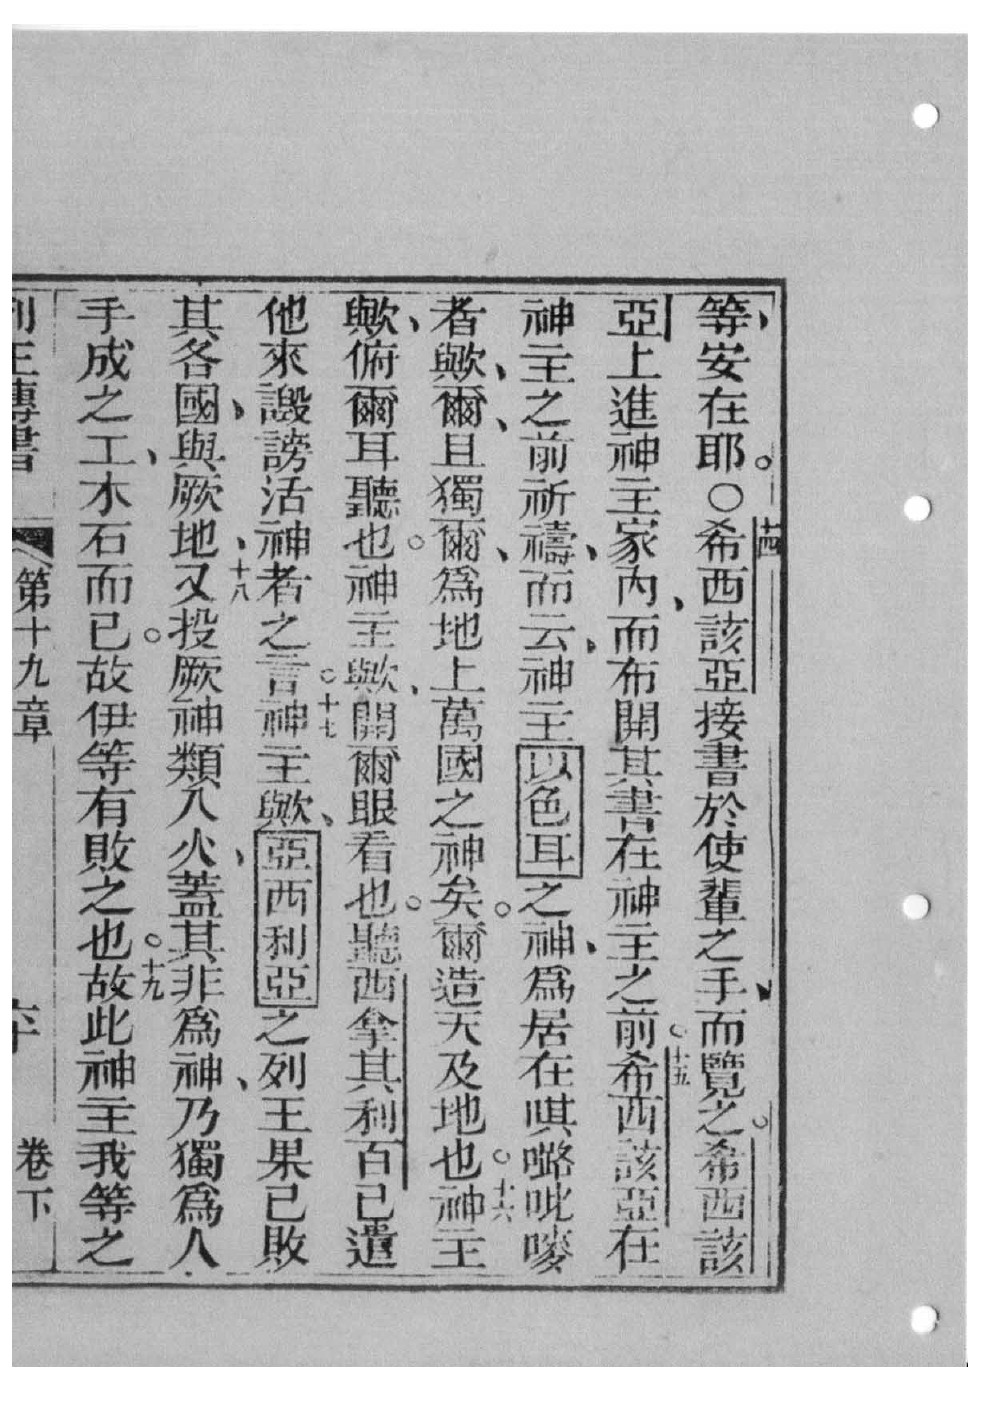 等、安在耶。〇十四希西該亞接書於使輩之手、而覽之。希西該
亞上進神主家內、而布開其書在神主之前。十五希西該亞在
神主之前祈禱、而云、神主以色耳之神、為居在𠵽𡀔吡㖼
者歟、爾、且獨爾、為地上萬國之神矣。爾造天及地也。十六神主
歟、俯爾耳聽也。神主歟、開爾眼看也。聽西拿其利百已遣
他來譭謗活神者之言。十七神主歟、亞西利亞之列王果已敗
其各國、與厥地、十八又投厥神類入火、蓋其非為神、乃獨為人
手成之工、木石而已。故伊等有敗之也。十九故此神主我等之
列王傳書 第十九章 六十 卷下